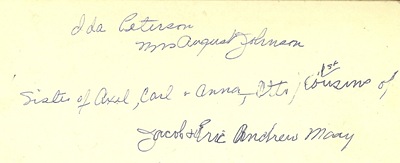 Ida Peterson
Mrs August Johnson
Sister of Axel, Carl + Anna, Otto, 1st Cousins of
Jacob & Eric Andrew Maay